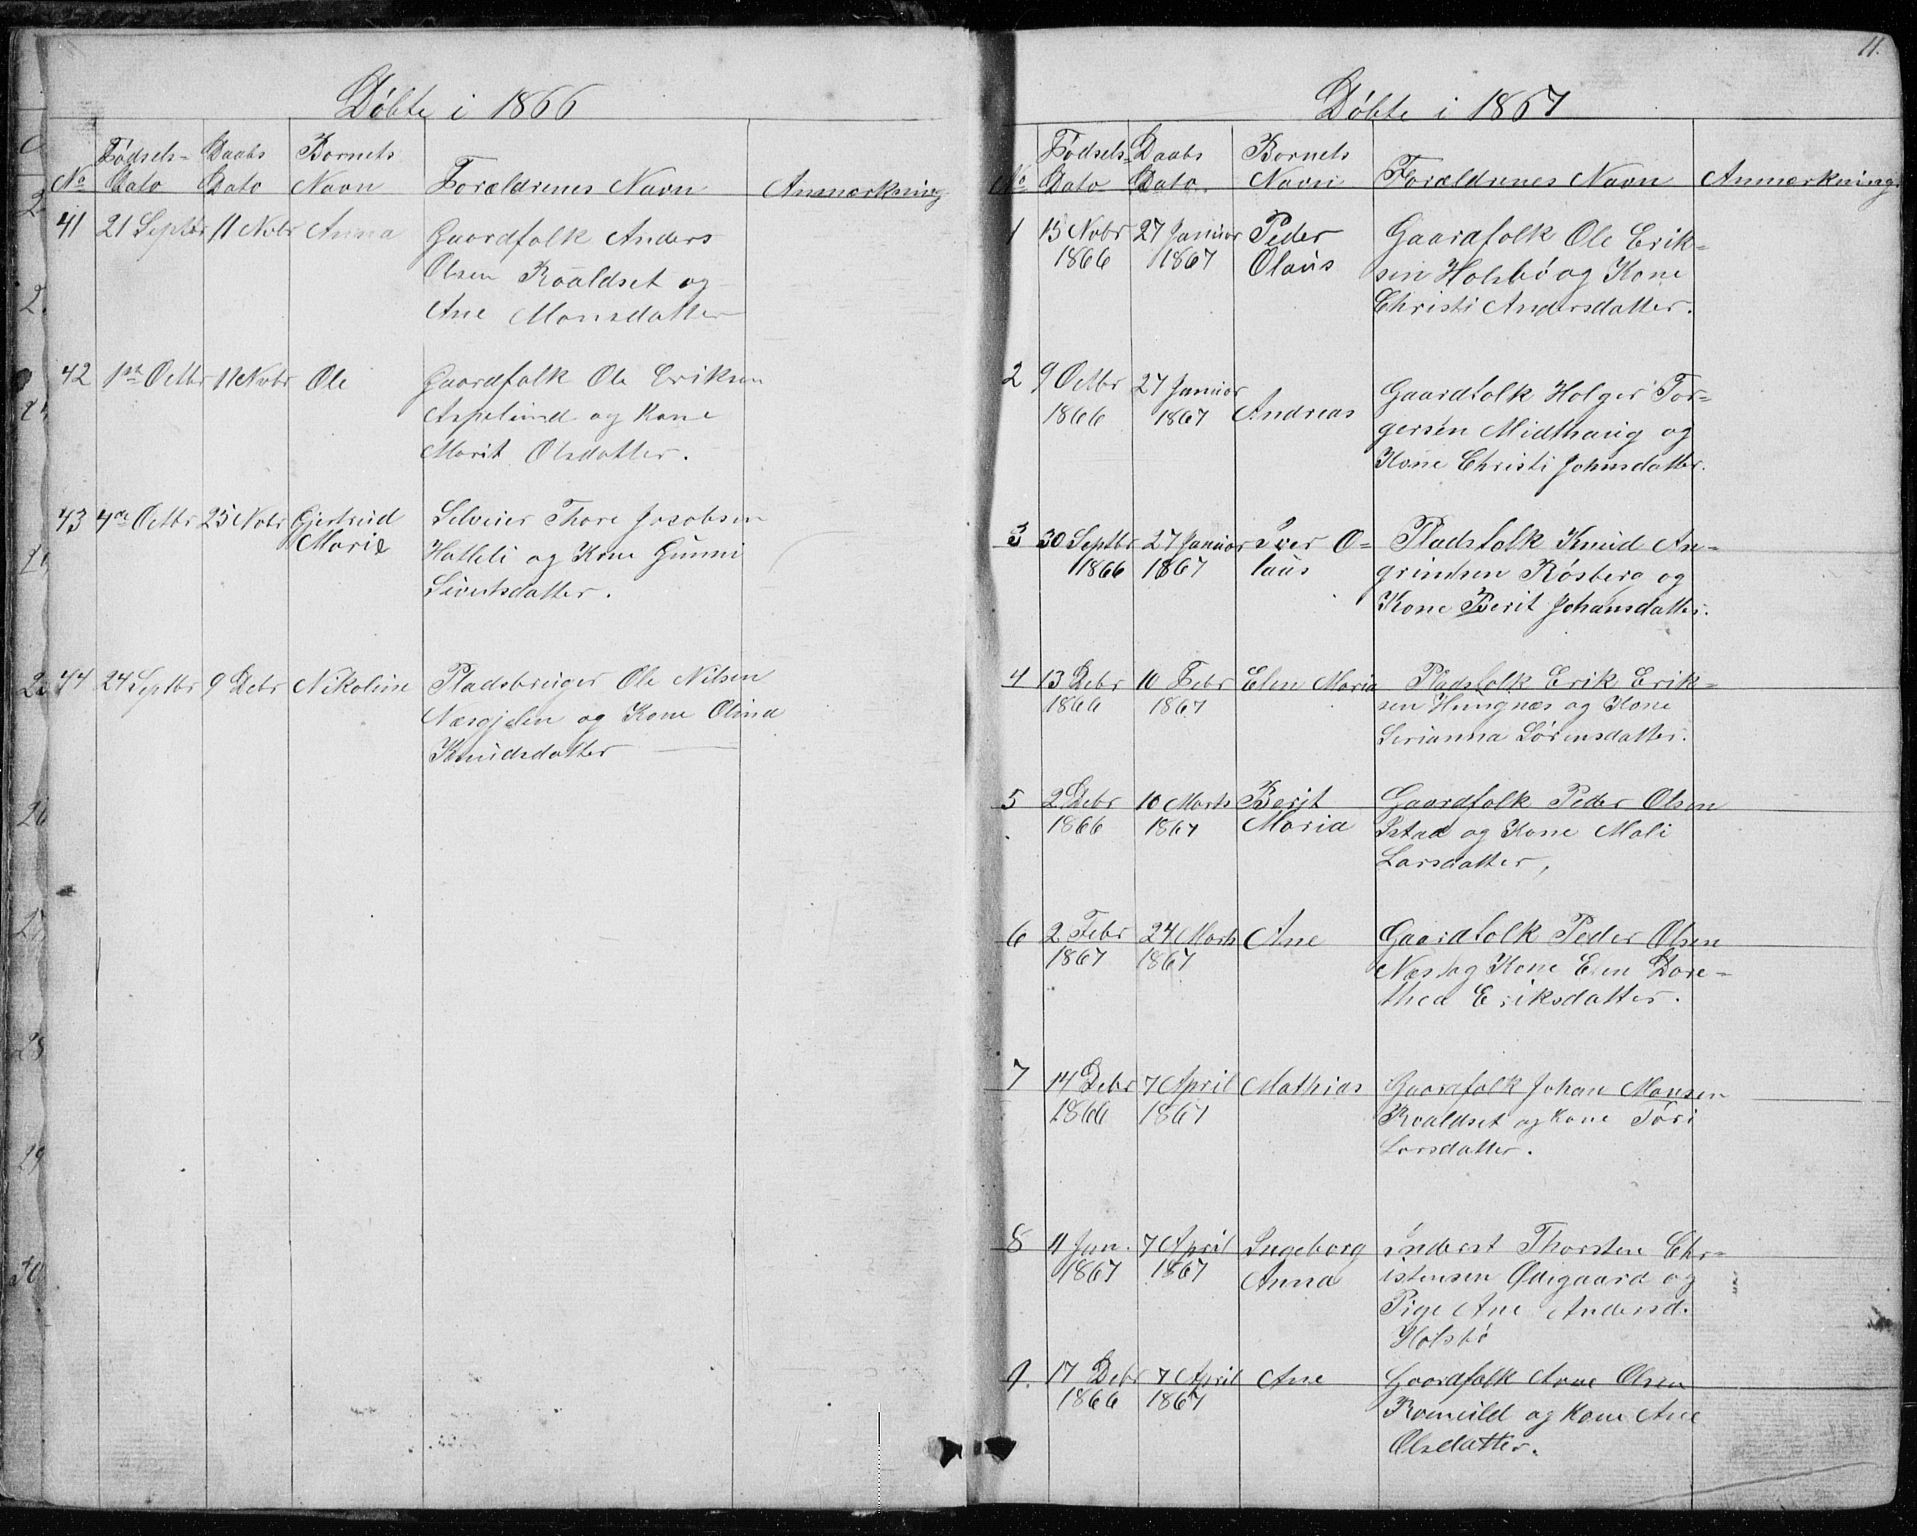 Döbte i 1866
No Födsels-Dato Daabs Dato Bornets Navn Forældrenes Navn Anmærkning
41 21 Septbr 11 Nvbr Anna Gaardfolk Anders
Olsen Roaldset og
Ane Monsdatter
42 1ste Octbr 11 Novbr Ole Gaardfolk Ole Eriksen
Aspelund og Kone
Marit Olsdatter.
43 4de Octbr 25 Novbr Gjertrud Selveier Thore Jacobsen
Marie Hatleli og Kone Gunni
Sivertsdatter.
44 24 Septbr 9 Debr Nikoline Pladsbruger Ole Nilsen
og Kone Olina
Knudsdatter
11.
Döbte i 1867
No Födsels-Dato Daabs Dato. Bornets Navn Forældrenes Navn Anmærkning
1 15 Nvbr 27 Januar Peder Gaardfolk Ole Erik-
1866 1867 Olaus sen Holsbö og Kone
Christi Andersdatter.
2 9 Octbr 27 Januar Gaardfolk Holger Tor-
1866 1867 Andreas gersen Midthaug og
Kone Christi Johnsdatter.
3 30 Septbr 27 Januar Iver O- Pladsfolk Knud An-
1866 1867 laus grimsen Rösberg og
Kone Berit Johansdatter.
4 13 Debr 10 Febr Elen Maria Pladsfolk Erik Erik-
1866 1867 sen Hungnæs og Kone
Serianna Sörensdatter.
5 2 Debr 10 Marts Berit Gaardfolk Peder Olsen
1866 1867 Maria Istad og Kone Mali
Larsdatter,
6 2 Febr 24 Marts Ane Gaardfolk Peder Olsen
1867 1867 Næs og Kone Elen Dore-
thea Eriksdatter.
7 14 Debr 7 April Mathias Gaardfolk Johan Monsen
1866 1867 Roaldset og Kone Töri
Larsdatter.
8 11 Jan. 7 April Ingeborg Inderst Thorsten Chr-
1867 1867 Anna istensen Ödegaard og
Pige Ane Andersd.
Holsbö
9. 17 Debr 7 April Ane Gaardfolk Arne Olsen
1866 1867 og Kone Ane
Olsdatter.